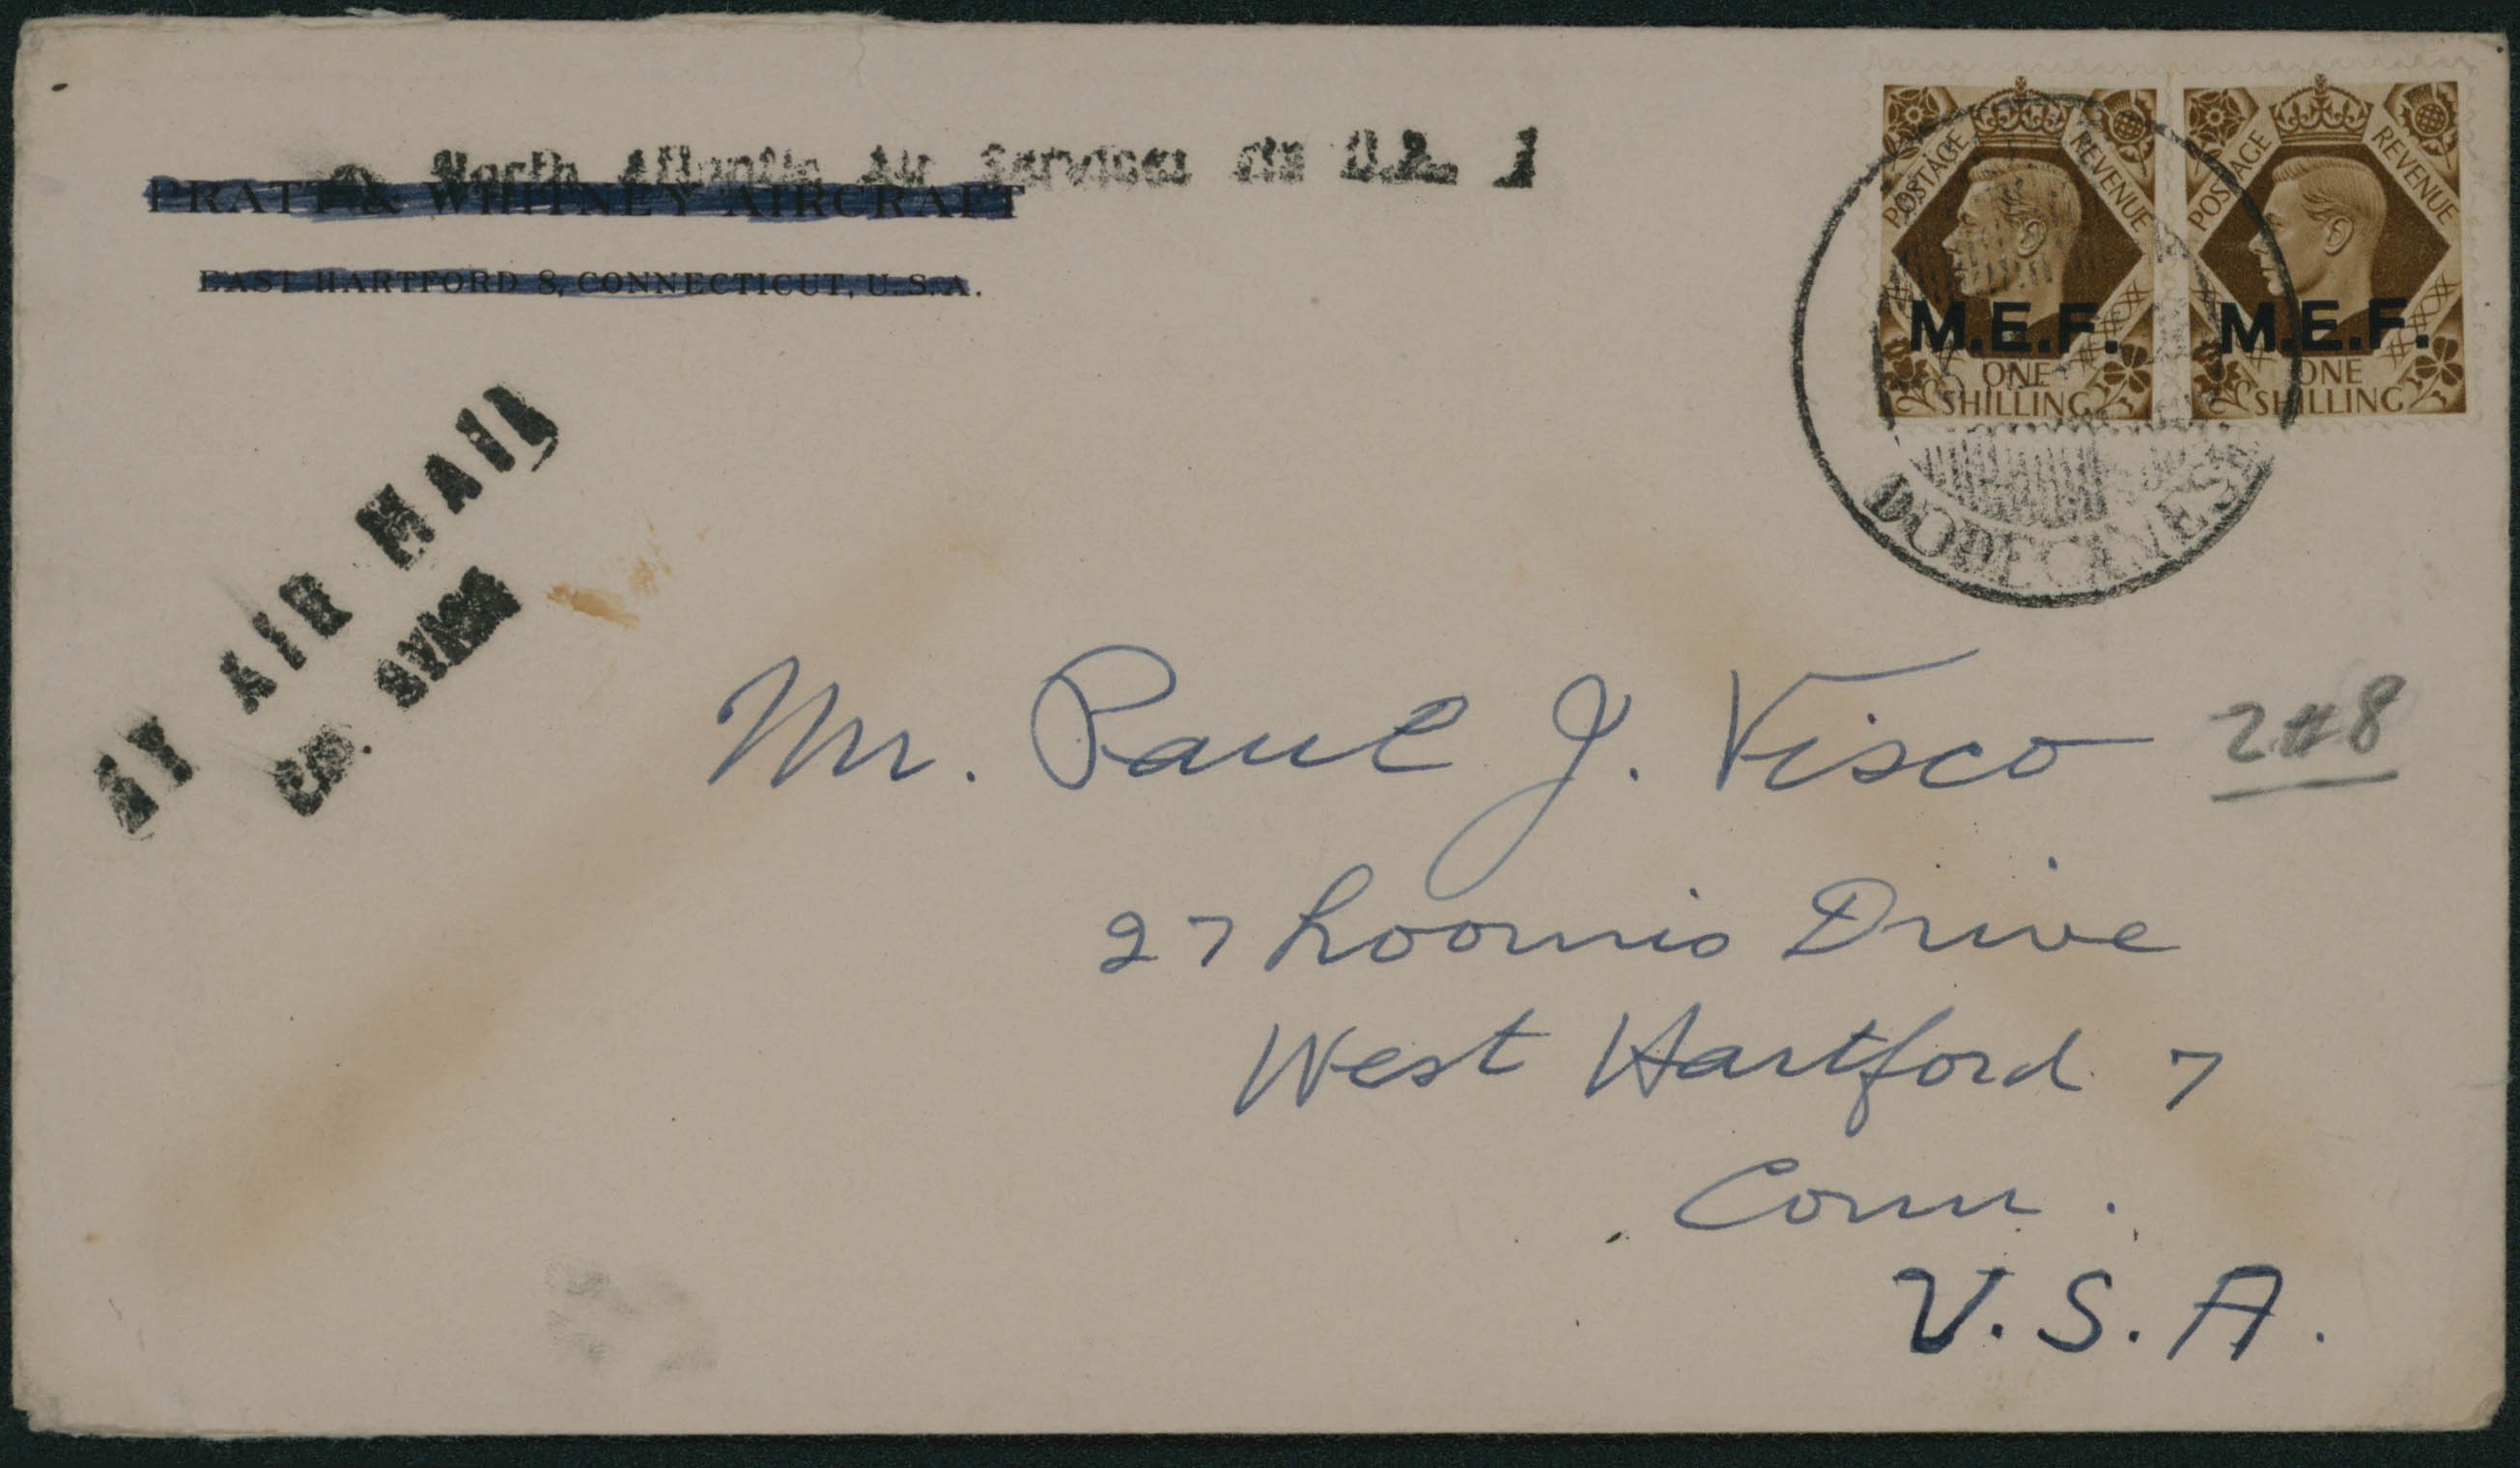 North Atlantic Air Services
PRATT & WHITNEY AIRCRAFT
EAST HARTFORD 8, CONNECTICUT, U.S.A.
POSTAGE REVENUE
M.E.F.
ONE
SHILLING
POSTAGE REVENUE
M.E.F.
ONE
SHILLING
DODECANESE
BY AIR MAIL
Mr. Paul J. Visco
27 Loomis Drive
West Hartford 7
Conn.
U.S.A.